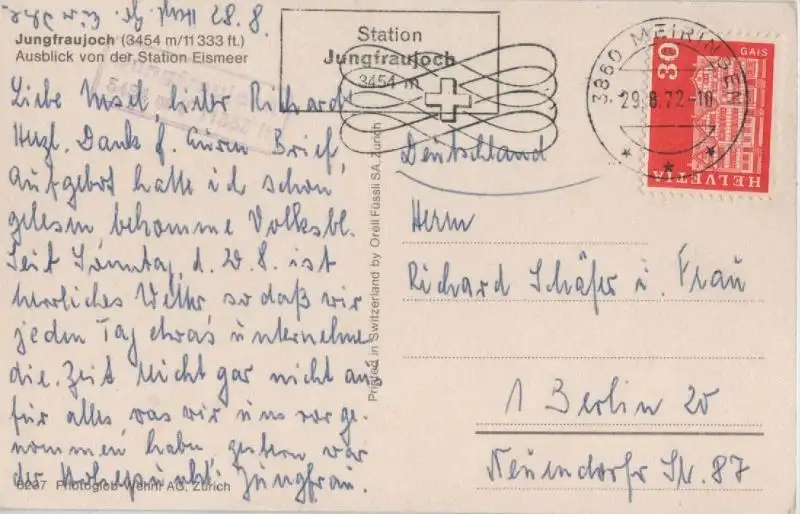 28.8.
Jungfraujoch (3454 m/11 333 ft.)
Ausblick von der Station Eismeer
Liebe Insel, lieber Richard!
Herzl. Dank f. Euren Brief,
Aufgebot hatte ich schon
gelesen bekomme Volksbl.
Seit Sonntag, d. 20.8. ist
herrliches Wetter, so daß wir
jeden Tag etwas unternehmen
die Zeit reicht gar nicht aus
für alles, was wir uns vorge-
nommen haben, gestern war
der Höhepunkt: Jungfrau.
6237 Photoglob-Wehrli AG, Zürich
Printed in Switzerland by Orell Füssli SA, Zurich
Station
Jungfraujoch
3454 m
3860 MEIRINGEN
29.8.72-10
30
GAIS
HELVETIA
Deutschland
Herrn
Richard Schäfer u. Frau
1 Berlin 20
Neuendorfer Str. 87